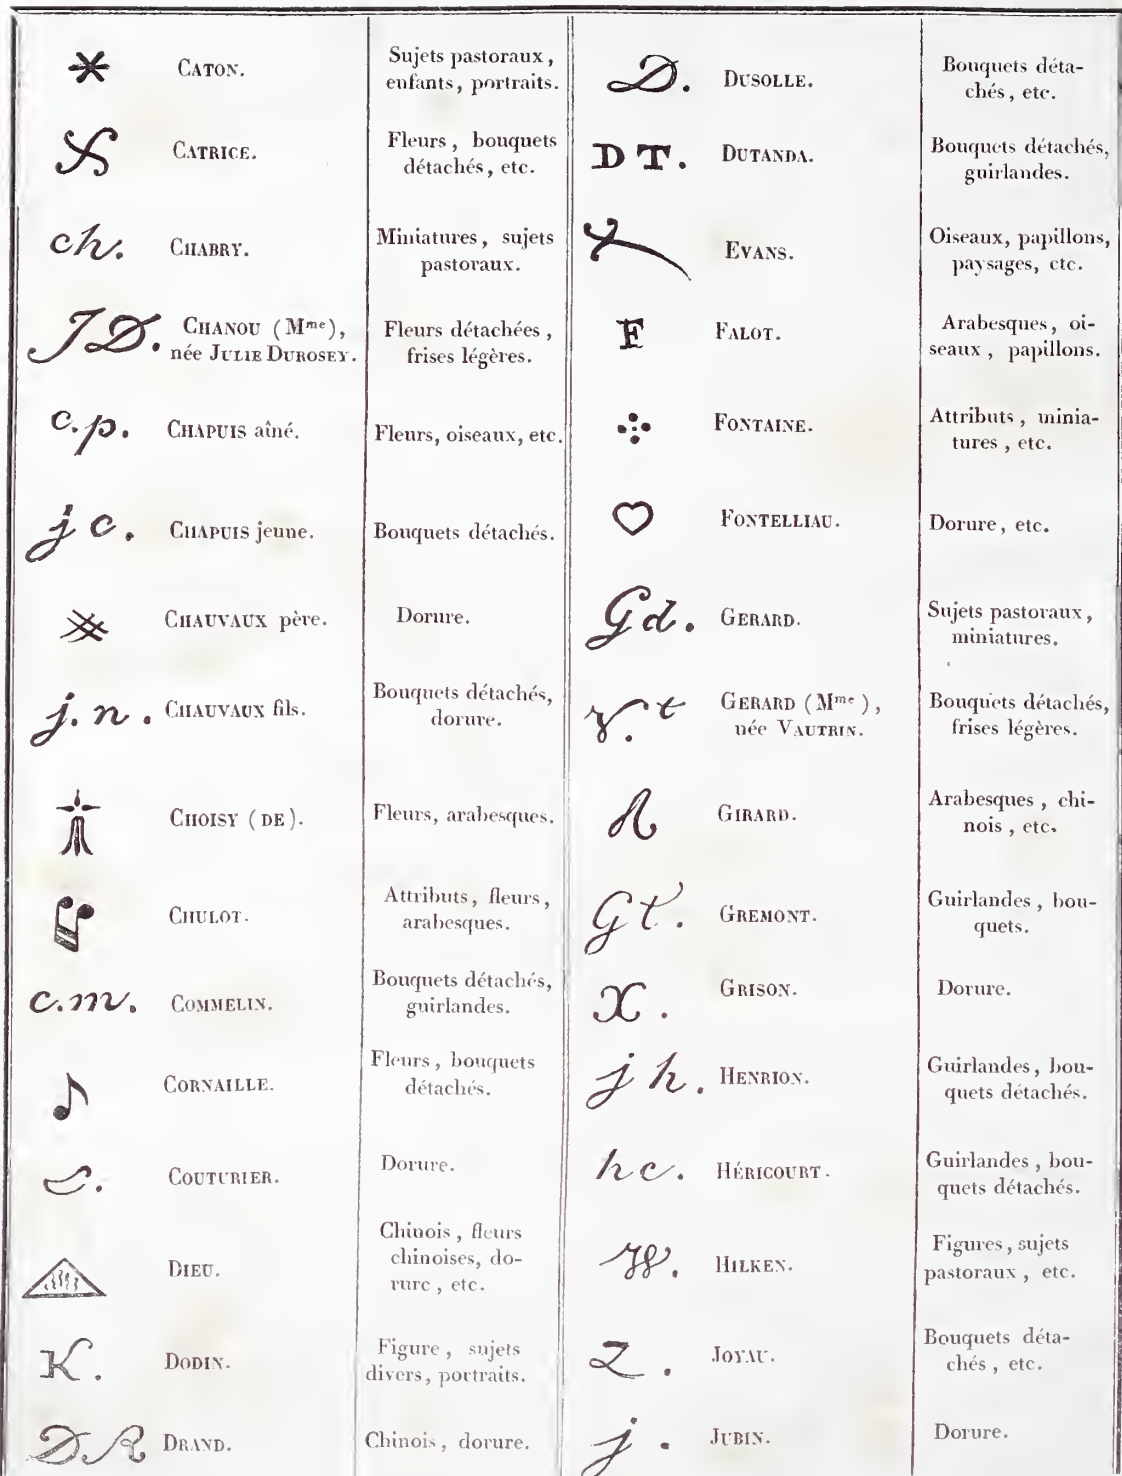 CATON.
Sujets pastoraux,
enfants, portraits.
CATRICE.
Fleurs, bouquets
détachés, etc.
ch.
CHABRY.
Miniatures, sujets
pastoraux.
JD.
CHANOU (Mme),
née JULIE DUROSEY.
Fleurs détachées,
frises légères.
c.p.
CHAPUIS aîné.
Fleurs, oiseaux, etc.
j c.
CHAPUIS jeune.
Bouquets détachés.
CHAUVAUX père.
Dorure.
j.n.
CHAUVAUX fils.
Bouquets détachés,
dorure.
CHOISY (DE).
Fleurs, arabesques.
CHULOT.
Attributs, fleurs,
arabesques.
c.m.
COMMELIN.
Bouquets détachés,
guirlandes.
CORNAILLE.
Fleurs, bouquets
détachés.
COUTURIER.
Dorure.
DIEU.
Chinois, fleurs
chinoises, do-
rure, etc.
K.
DODIN.
Figure, sujets
divers, portraits.
DR
DRAND.
Chinois, dorure.
D.
DUSOLLE.
Bouquets déta-
chés, etc.
DT.
DUTANDA.
Bouquets détachés,
guirlandes.
EVANS.
Oiseaux, papillons,
paysages, etc.
F
FALOT.
Arabesques, oi-
seaux, papillons.
FONTAINE.
Attributs, minia-
tures, etc.
FONTELLIAU.
Dorure, etc.
Gd.
GERARD.
Sujets pastoraux,
miniatures.
V.t
GERARD (Mme),
née VAUTRIN.
Bouquets détachés,
frises légères.
GIRARD.
Arabesques, chi-
nois, etc.
Gt.
GREMONT.
Guirlandes, bou-
quets.
X.
GRISON.
Dorure.
jh.
HENRION.
Guirlandes, bou-
quets détachés.
hc.
HÉRICOURT.
Guirlandes, bou-
quets détachés.
W.
HILKEN.
Figures, sujets
pastoraux, etc.
Z.
JOYAU.
Bouquets déta-
chés, etc.
j.
JUBIN.
Dorure.